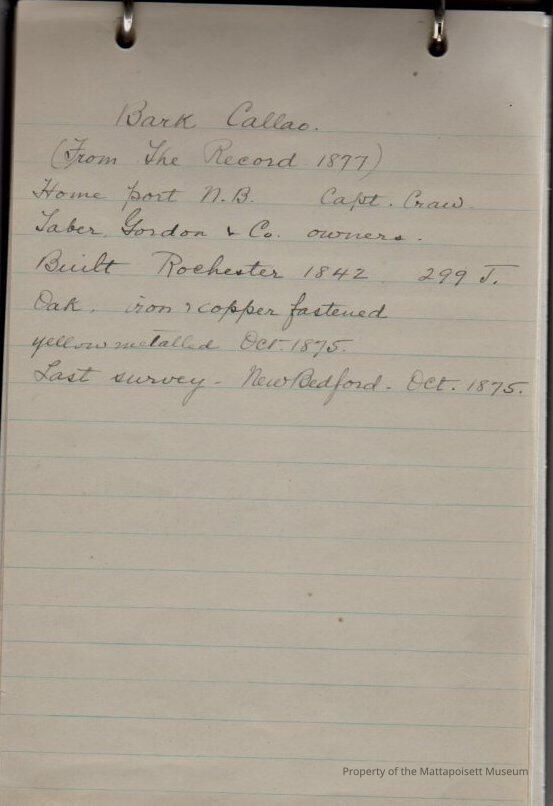 Bark Callao.
(From The Record 1877)
Home port N.B. Capt. Craw.
Taber, Gordon & Co. owners.
Built Rochester 1842. 299 T.
Oak, iron & copper fastened
yellow metalled Oct. 1875.
Last survey - New Bedford - Oct. 1875.
Property of the Mattapoisett Museum